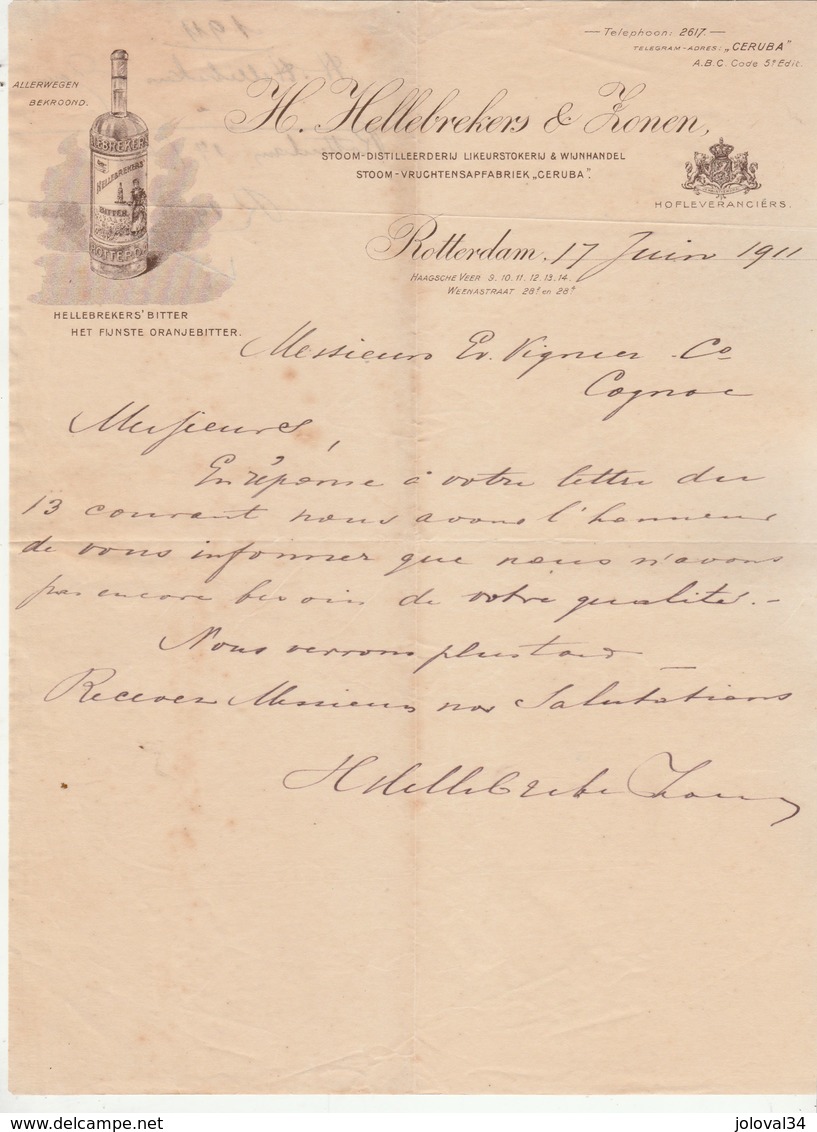 Telephoon: 2617.
TELEGRAM-ADRES: „CERUBA"
A.B.C. Code 5e Edit.
ALLERWEGEN
BEKROOND.
H. Hellebrekers & Zonen,
STOOM-DISTILLEERDERIJ LIKEURSTOKERIJ & WIJNHANDEL
STOOM-VRUCHTENSAPFABRIEK „CERUBA".
HOFLEVERANCIÉRS.
HELLEBREKERS
HELLEBREKERS'
BITTER
ROTTERD
Rotterdam, 17 Juin 1911
HAAGSCHE VEER 9. 10. 11. 12. 13. 14.
WEENASTRAAT 28e en 28f
HELLEBREKERS' BITTER
HET FIJNSTE ORANJEBITTER.
Messieurs Ev. Vignier Co
Cognac
Messieurs,
En réponse à votre lettre du
13 courant nous avons l'honneur
de vous informer que nous n'avons
pas encore besoin de votre qualité. –
Nous verrons plus tard
Recevez Messieurs nos Salutations
H Hellebrekers Zonen
delcampe.net
joloval34